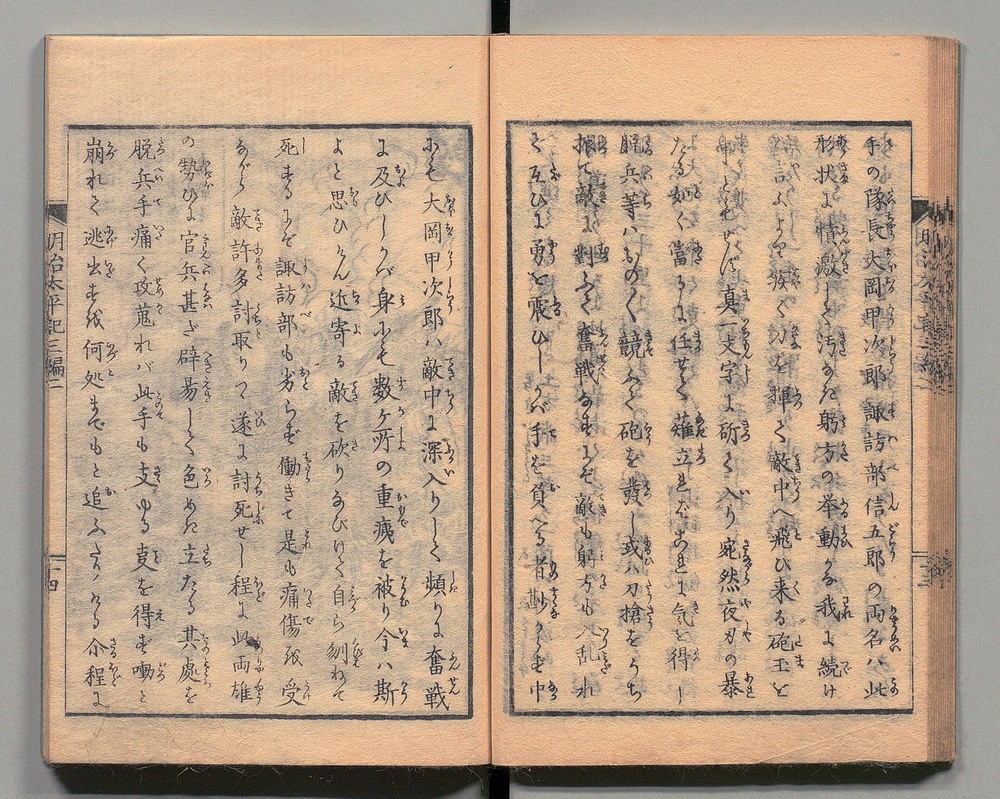 手の隊長大岡甲次郎諏訪部信五郎の両名ハ此
形状に憤激して汚なき躬方の挙動かな我に続け
と云ふよりて疾く刀を揮て敵中へ飛び来る砲玉を
ともせず真一文字に斫て入り宛然夜刃の暴
たる如く當るに任せて薙立ればこれに気を得し
脱兵等ハものゝ競ふて砲を發し或ハ刀搶をうち
振て敵に對ふて奮戦なすにぞ敵も躬方も入乱れ
て互ひに勇を震ひしかバ手を負へる者尠からず中
にも大岡甲次郎ハ敵中に深入りして頻りに奮戦
に及びしかバ身にも数ケ所の重痍を被り今ハ斯
よと思ひけん近寄る敵を砍りなびけて自ら刎ねて
死するにぞ諏訪部も劣らず働きて是も痛傷を受
ながら敵許多討取りつ遂に討死せし程に此両雄
の勢ひに官兵甚だ辟易して色めき立たる其處を
脱兵手痛く攻蒐れバ此手も支ゆる叓を得ず噇と
崩れて逃出すを何処までもと追ふたりける介程に
明治太平記三編二
十四